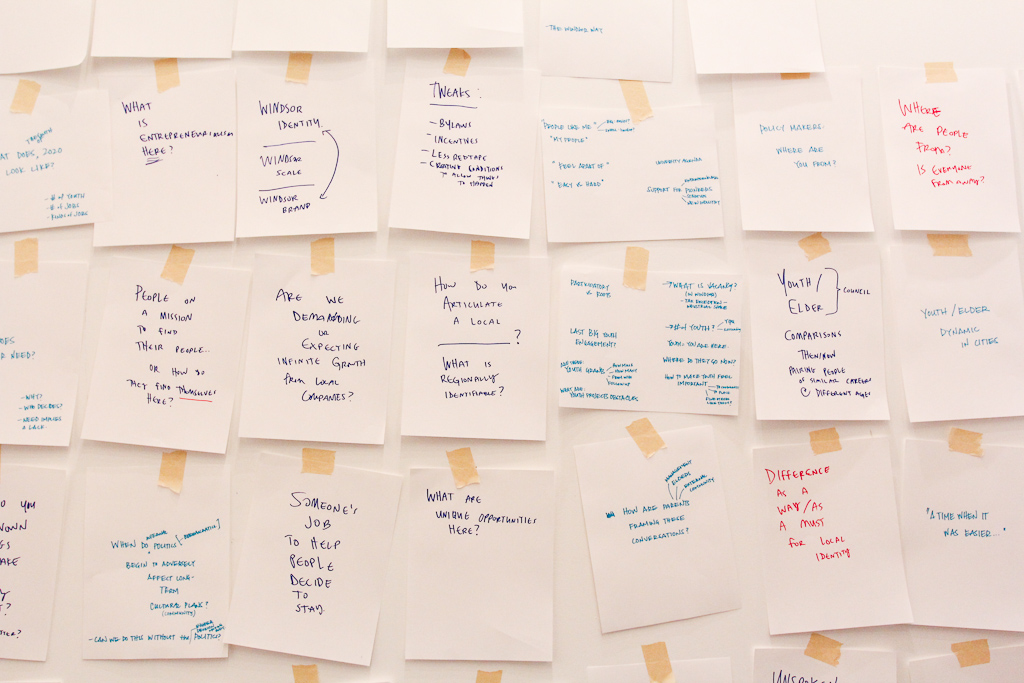 - THE WINDSOR WAY
WHAT
IS
ENTREPRENEURIALISM
HERE?
WINDSOR
IDENTITY
WINDSOR
SCALE
WINDSOR
BRAND
TWEAKS:
- BYLAWS
- INCENTIVES
- LESS REDTAPE
- CREATING CONDITIONS
TO ALLOW THINGS
TO HAPPEN
PEOPLE LIKE ME"
"MY PEOPLE"
"FEEL APART OF"
"EASY VS HARD"
UNIVERSITY AGENDA
SUPPORT FOR PIONEERS
POLICY MAKERS:
WHERE ARE
YOU FROM?
WHERE
ARE PEOPLE
FROM?
IS EVERYONE
FROM AWAY?
AT DOES, 2020
LOOK LIKE?
- # OF YOUTH
- # OF JOBS
- KINDS OF JOBS
PEOPLE ON
A MISSION
TO FIND
THEIR PEOPLE...
OR HOW DO
THEY FIND THEMSELVES
HERE?
ARE WE
DEMANDING
OR
EXPECTING
INFINITE GROWTH
FROM LOCAL
COMPANIES?
HOW DO YOU
ARTICULATE
A LOCAL
?
WHAT IS
REGIONALLY
IDENTIFIABLE?
PARTICIPATORY
LAST BIG YOUTH
ENGAGEMENT?
YOUTH GRANTS
WHAT ARE
YOUTH PROJECTS OBSTACLES
- WHAT IS VACANCY?
(IN WINDSOR)
→ # OF YOUTH?
YOUTH: YOU ARE HERE.
WHERE DO THEY GO NOW?
HOW TO MAKE YOUTH FEEL
IMPORTANT
YOUTH/
ELDER
COUNCIL
COMPARISONS
THEN/NOW
PAIRING PEOPLE
OF SIMILAR CAREERS
@ DIFFERENT AGES
YOUTH/ELDER
DYNAMIC
IN CITIES
OES
R NEED?
- WHY?
- WHO DECIDES?
- NEED IMPLIES
A LACK.
WHEN DO POLITICS
BEGIN TO ADVERSELY
AFFECT LONG-
TERM
CULTURAL PLANS?
(COMMUNITY)
- CAN WE DO THIS WITHOUT the POLITICS?
SOMEONE'S
JOB
TO HELP
PEOPLE
DECIDE
TO
STAY.
WHAT ARE
UNIQUE OPPORTUNITIES
HERE?
MANAGEMENT
ELDERS
EXTERNAL
COMMUNITY
HOW ARE PARENTS
FRAMING THESE
CONVERSATIONS?
DIFFERENCE
AS A
WAY/AS
A MUST
FOR LOCAL
IDENTITY
"A TIME WHEN IT
WAS EASIER..."
O YOU
NOWN
GS
AKE
Y
T?
UNSPOKEN